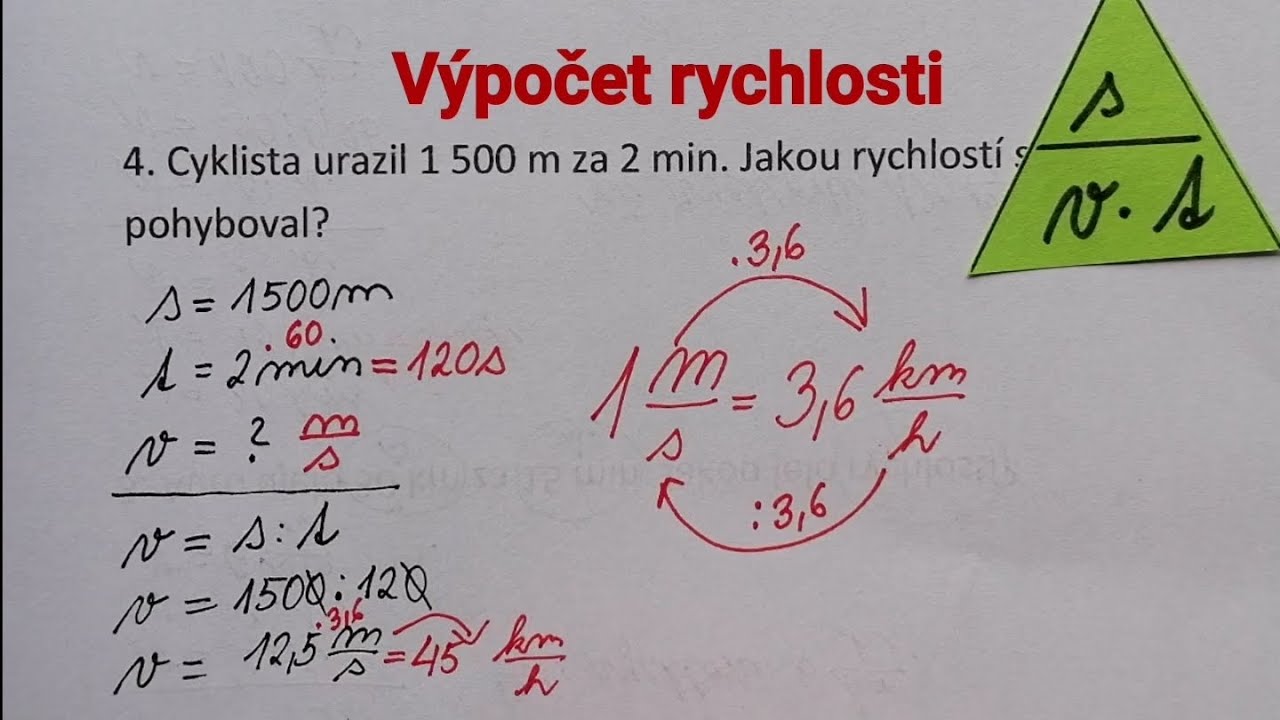 Výpočet rychlosti
4. Cyklista urazil 1 500 m za 2 min. Jakou rychlostí s
pohyboval?
s
v · t
s = 1500 m
· 60
t = 2 min = 120 s
v = ? m/s
v = s : t
v = 1500 : 120
· 3,6
v = 12,5 m/s = 45 km/h
· 3,6
1 m/s = 3,6 km/h
: 3,6